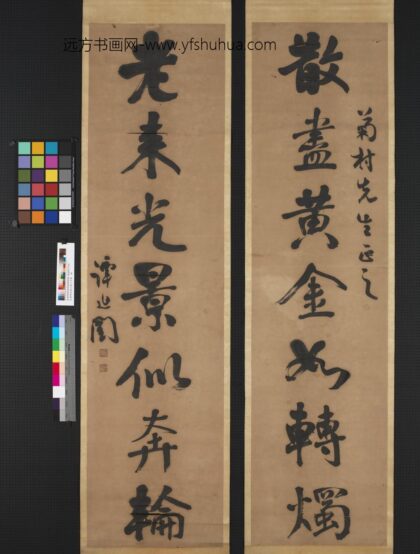 远方书画网-www.yfshuhua.com
菊村先生正之
散盡黃金如轉燭
老来光景似奔輪
譚延闓